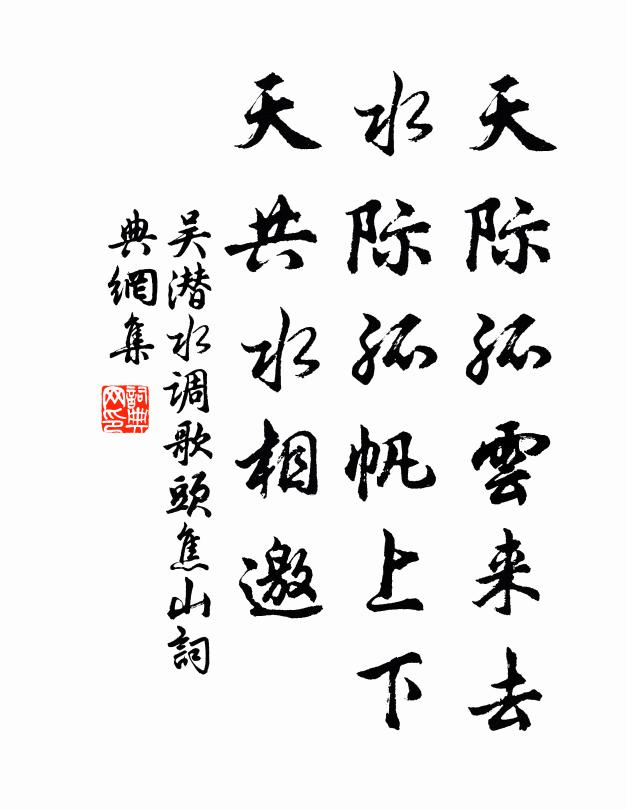 天际孤雲来去
水际孤帆上下
天共水相邀
吴潜水调歌頭焦山詞
典網集
詞典網印